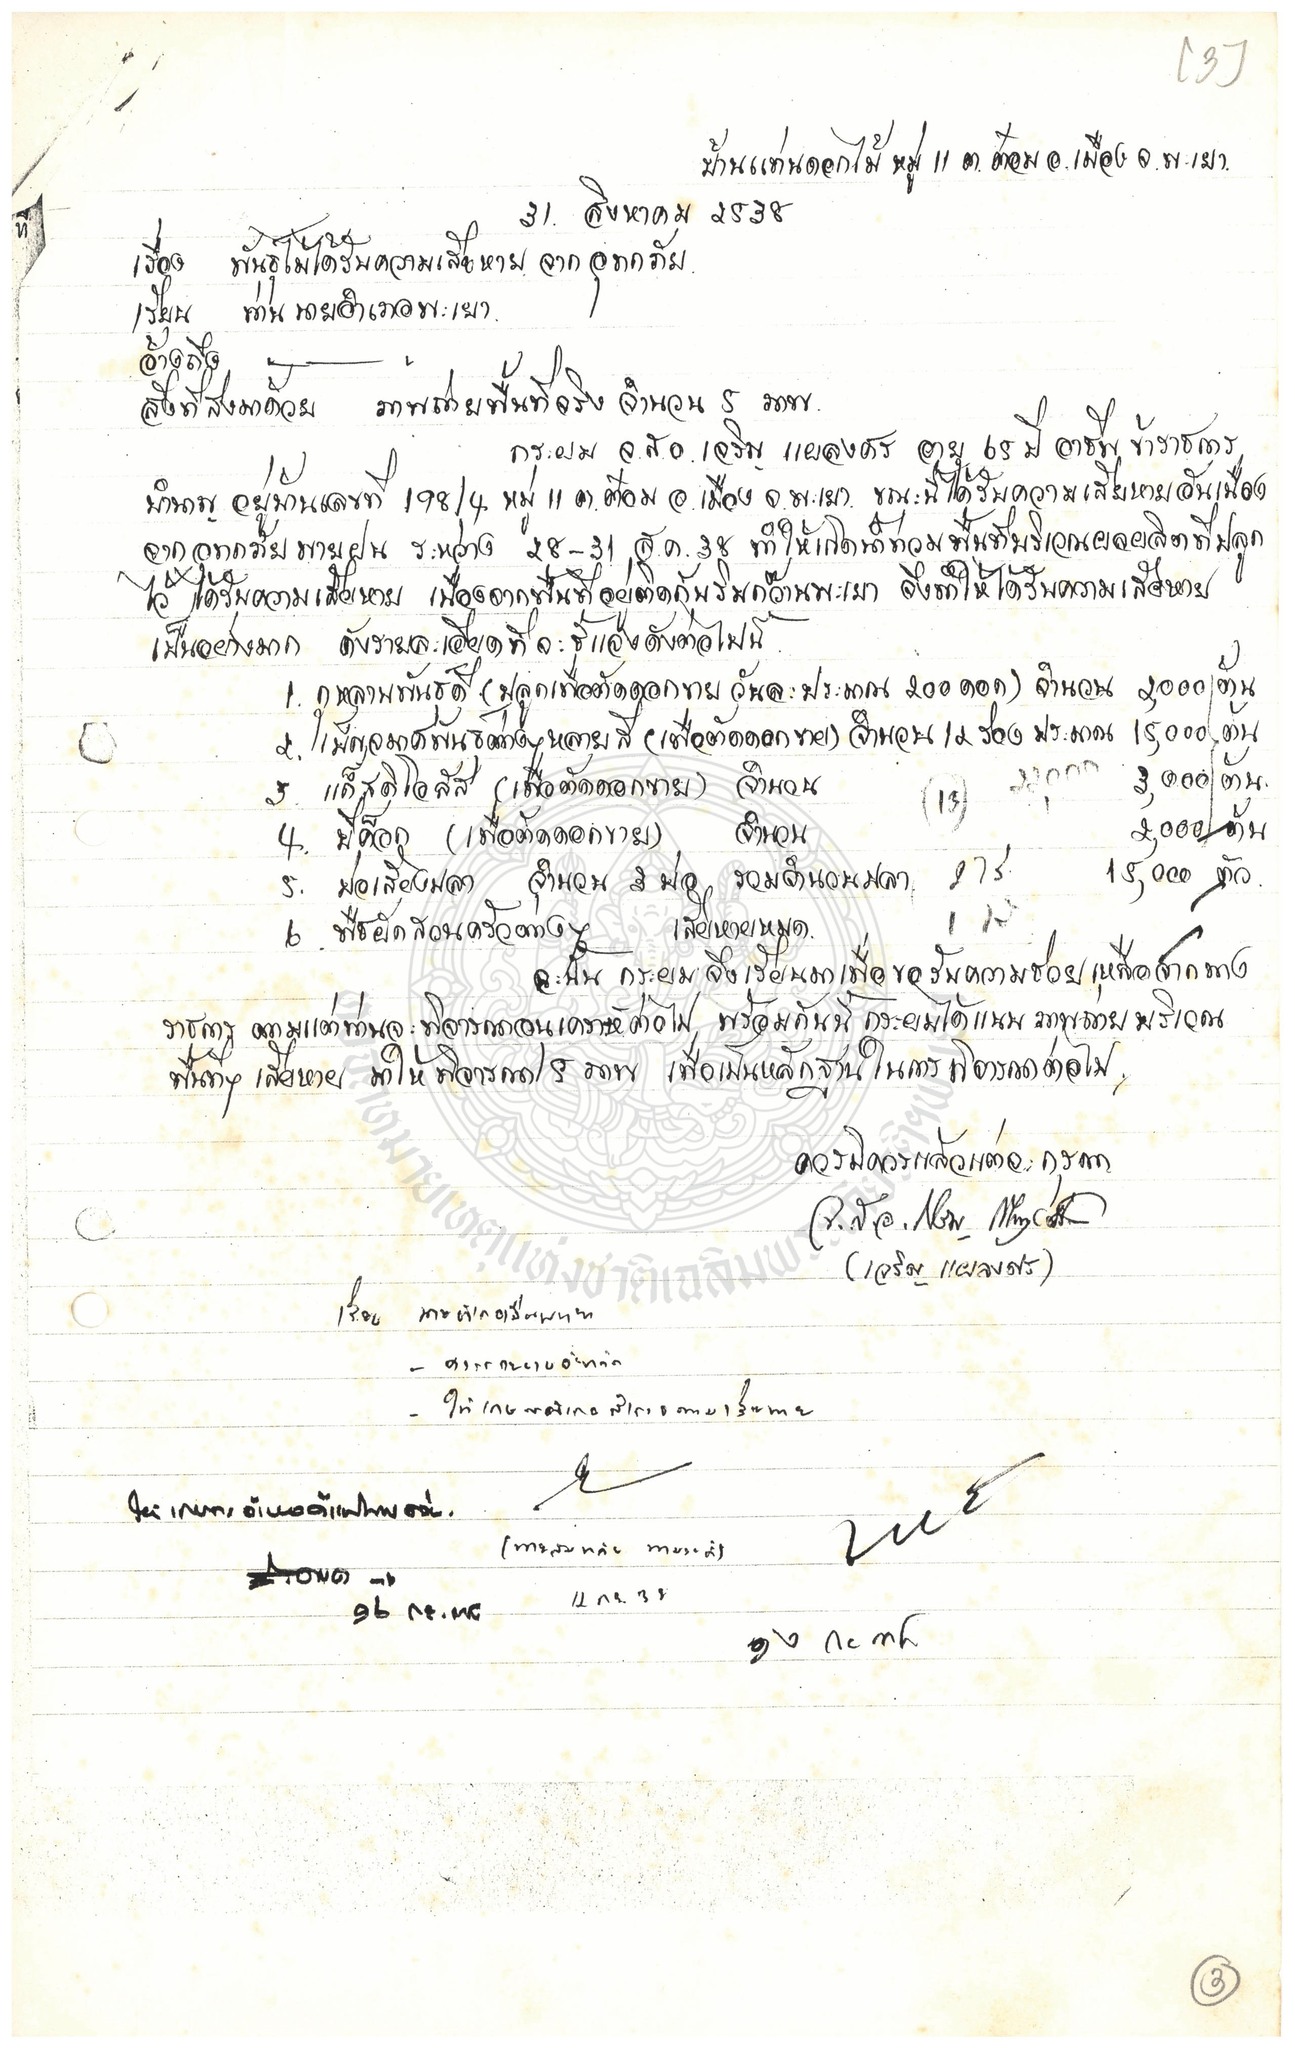 [3]
บ้านแท่นดอกไม้ หมู่ 11 ต.ต๋อม อ.เมือง จ.พะเยา.
31 สิงหาคม 2538
ที่
เรื่อง พันธุ์ไม้ได้รับความเสียหายจากอุทกภัย
เรียน ท่านนายอำเภอพะเยา
อ้างถึง
สิ่งที่ส่งมาด้วย ภาพถ่ายพื้นที่จริง จำนวน 5 ภาพ.
กระผม จ.ส.อ. เจริญ แผลงศร อายุ 65 ปี อาชีพ ข้าราชการ
บำนาญ อยู่บ้านเลขที่ 198/4 หมู่ 11 ต.ต๋อม อ.เมือง จ.พะเยา ขณะนี้ได้รับความเสียหายอันเนื่อง
จากอุทกภัยพายุฝน ระหว่าง 28-31 ส.ค. 38 ทำให้เกิดน้ำท่วมพื้นที่บริเวณผลผลิตที่ปลูก
ไว้ ได้รับความเสียหาย เนื่องจากพื้นที่อยู่ติดกับริมกว๊านพะเยา จึงทำให้ได้รับความเสียหาย
เป็นอย่างมาก ดังรายละเอียดที่จะชี้แจงดังต่อไปนี้
1. กุหลาบพันธุ์ดี (ปลูกเพื่อตัดดอกขาย วันละประมาณ 200 ดอก) จำนวน 2,000 ต้น
2. เบ็ญจมาศพันธุ์ต่างๆหลายสี (เพื่อตัดดอกขาย) จำนวน 12 ร่อง ประมาณ 15,000 ต้น
3 แกล็ดดิโอลัส (เพื่อตัดดอกขาย) จำนวน (13) 3,000 ต้น.
4. พีค็อก (เพื่อตัดดอกขาย) จำนวน 2,000 ต้น
5. บ่อเลี้ยงปลา จำนวน 3 บ่อ รวมจำนวนปลา 15,000 ตัว.
6 พืชผักสวนครัวต่างๆ เสียหายหมด.
ฉะนั้น กระผมจึงเรียนมาเพื่อขอรับความช่วยเหลือจากทาง
ราชการ ตามแต่ท่านจะพิจารณาอนุเคราะห์ต่อไป พร้อมกันนี้ กระผมได้แนบภาพถ่ายบริเวณ
พื้นที่ๆ เสียหาย มาให้พิจารณา 5 ภาพ เพื่อเป็นหลักฐานในการพิจารณาต่อไป.
ควรมิควรแล้วแต่จะกรุณา
จ.ส.อ.
(เจริญ แผลงศร)
หอจดหมายเหตุแห่งชาติเฉลิมพระเกียรติฯพะเยา
เรียน นายอำเภอเมืองพะเยา
11 กย 38
๑๒ กย.๓๘
3